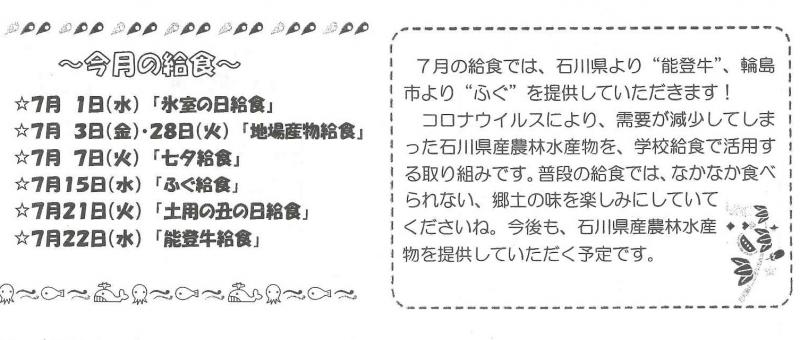 ～今月の給食～
☆7月 1日(水) 「氷室の日給食」
☆7月 3日(金)･28日(火) 「地場産物給食」
☆7月 7日(火) 「七夕給食」
☆7月15日(水) 「ふぐ給食」
☆7月21日(火) 「土用の丑の日給食」
☆7月22日(水) 「能登牛給食」
７月の給食では、石川県より“能登牛”、輪島
市より“ふぐ”を提供していただきます！
コロナウイルスにより、需要が減少してしま
った石川県産農林水産物を、学校給食で活用す
る取り組みです。普段の給食では、なかなか食べ
られない、郷土の味を楽しみにしていて
くださいね。今後も、石川県産農林水産
物を提供していただく予定です。